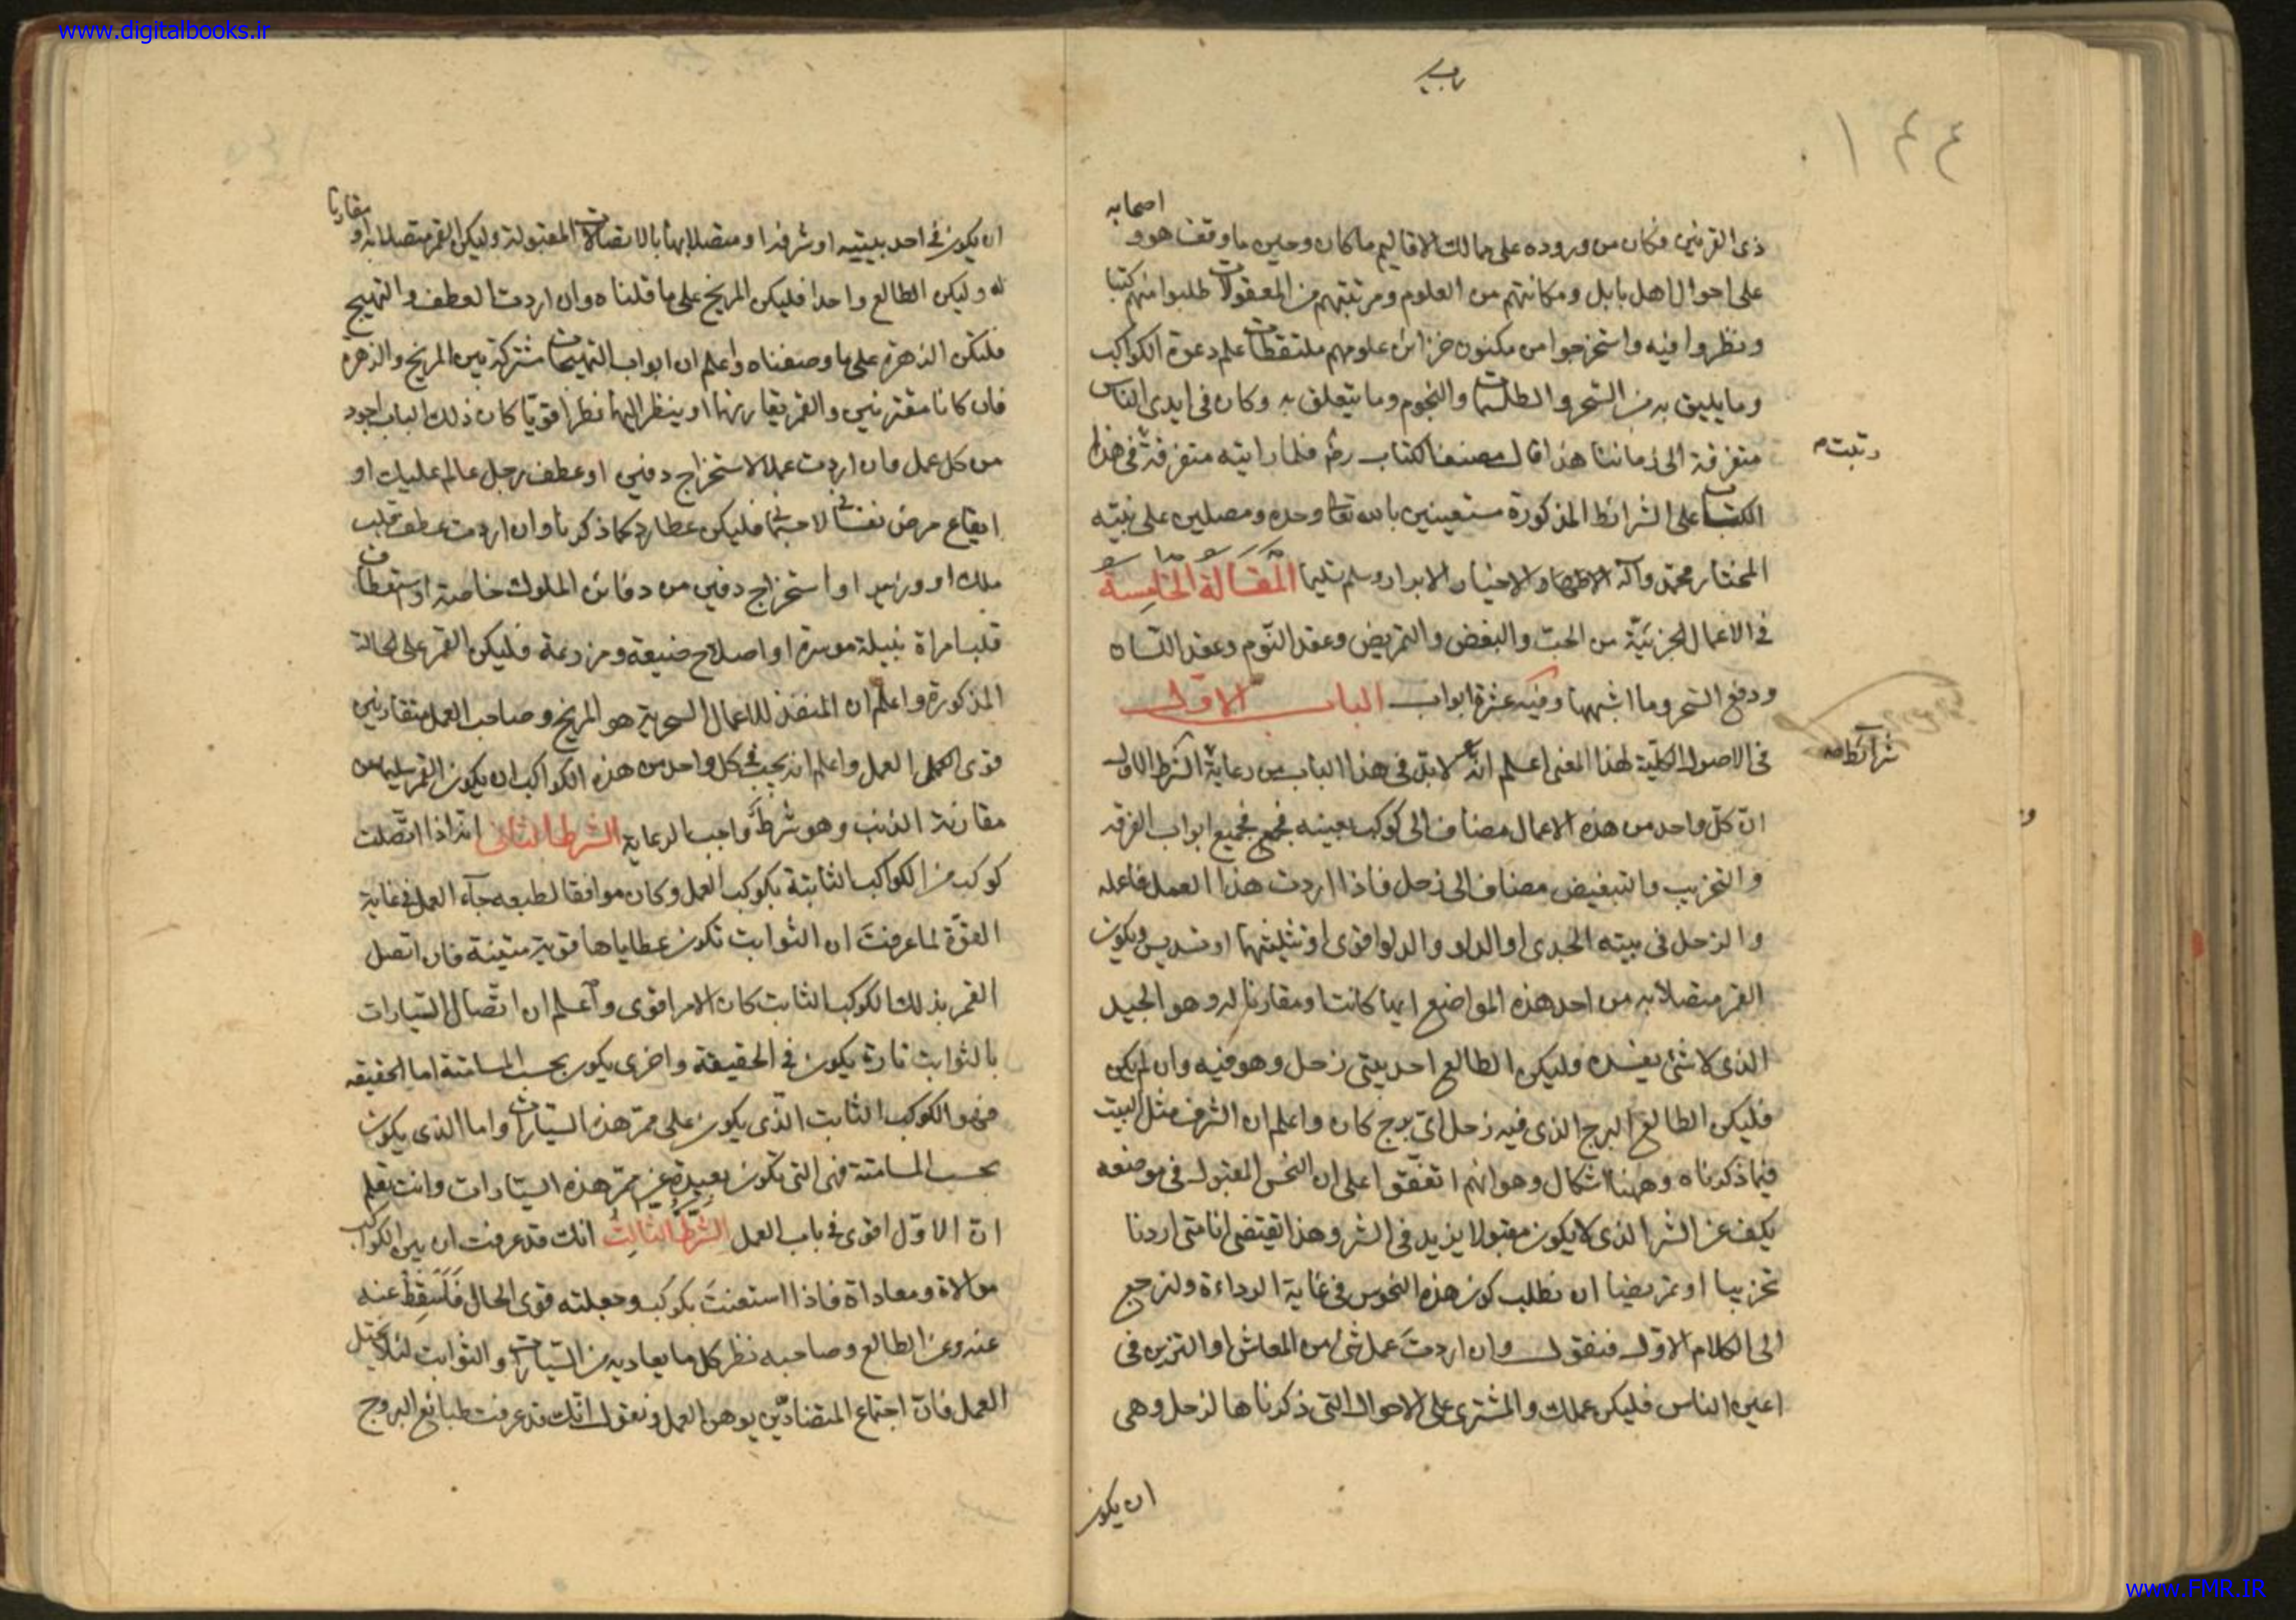 www.digitalbooks.ir
١٤٤
اصحابه
ذى القرنين فكان من وروده على ممالك الاقاليم ما كان وحين ما وقف هو و
على احوال اهل بابل ومكانتهم من العلوم ومرتبتهم من المعقولات طلبوا منهم كتبا
ونظروا فيه واستخرجوا من مكنون خزائن علومهم ملتقطات علم دعوة الكواكب
وما يليق به من السحر والطلسمات والنجوم وما يتعلق به وكان فى ايدى الناس
متفرقة الى زماننا هذا قال مصنف الكتاب رض فلما رايته متفرقة فى هذا
الكتاب على الشرائط المذكورة مستعينين بالله تعا وحده ومصلين على نبيه
المختار محمد وآله الاطهار والاخيار الابرار وسلم تسليما المقالة الخامسة
فى الاعمال الجزئية من الحب والبغض والتمريض وعقد النوم وعقد اللسان
ودفع السحر وما اشبهها وفيه عشرة ابواب الباب الاول
شرائط
فى الاصول الكلية لهذا المعنى اعلم انه لابد فى هذا الباب من رعاية الشرط الاول
ان كل واحد من هذه الاعمال مضاف الى كوكب بعينه فجميع ابواب الفرقه
والتخريب والتبغيض مضاف الى زحل فاذا اردت هذا العمل فاعله
والزحل فى بيته الجدى او الدلو والدلو اقوى او تثليثهما او تسديس ويكون
القمر متصلا به من احد هذه المواضع ايها كانت او مقارنا له وهو الجيد
الذى لا شئ يفسده وليكن الطالع احد بيتى زحل وهو فيه وان لم يكن
فليكن الطالع البرج الذى فيه زحل اى برج كان واعلم ان الشرف مثل البيت
فيما ذكرناه وههنا اشكال وهو انهم اتفقوا على ان النحس المقبول فى موضعه
يكف عن الشر الذى لا يكون مقبولا يزيد فى الشر وهذا يقتضى انا متى اردنا
تخريبا او تمريضا ان نطلب كون هذه النحوس فى غاية الرداءة ولنرجع
الى الكلام الاول فنقول وان اردت عمل شئ من المعاش او التزين فى
اعين الناس فليكن عملك والمشترى على الاحوال التى ذكرناها لزحل وهى
ان يكون
مقارنا
ان يكون فى احد بيتيه او شرفه او متصلا بهما بالاتصالات المقبولة وليكن القمر متصلا به او
له وليكن الطالع واحدا فليكن المريخ على ما قلناه وان اردت العطف والتهييج
فليكن الزهرة على ما وصفناه واعلم ان ابواب التهييجات مشتركة بين المريخ والزهرة
فان كانا مقترنين والقمر يقارنهما او ينظر اليهما نظرا قويا كان ذلك الباب اجود
من كل عمل فان اردت عملا لاستخراج دفين او عطف رجل عالم عليك او
ايقاع مرض نفسانى لا جسمانى فليكن عطارد كما ذكرنا وان اردت عطف قلب
ملك او وزير او استخراج دفين من دفائن الملوك خاصة او استعطاف
قلب امراة نبيلة موسرة او اصلاح ضيعة ومزرعة فليكن القمر على الحالة
المذكورة واعلم ان المنفذ للاعمال السحرية هو المريخ وصاحب العمل متقارنين
قوى العمل واعلم انه يجب فى كل واحد من هذه الكواكب ان يكون القمر سليما من
مقارنة الذنب وهو شرط واجب الرعاية الشرط الثانى انه اذا اتصلت
كوكب من الكواكب الثابتة بكوكب العمل وكان موافقا لطبعه جآء العمل فى غاية
القوة لما عرفت ان الثوابت تكون عطاياها قوية متينة فان اتصل
القمر بذلك الكوكب الثابت كان الامر اقوى واعلم ان اتصال السيارات
بالثوابت تارة يكون فى الحقيقة واخرى يكون بحسب المسامتة اما الحقيقه
فهو الكوكب الثابت الذى يكون على ممر هذه السيارات واما الذى يكون
بحسب المسامتة فهى التى تكون بعيدة عن ممر هذه السيارات وانت تعلم
ان الاول اقوى فى باب العمل الشرط الثالث انك قد عرفت ان بين الكواكب
موالاة ومعاداة فاذا استعنت بكوكب وجعلته قوى الحال فاسقط عنه
عنه وعن الطالع وصاحبه نظر كل ما يعاديه من السيارات والثوابت لئلا يختل
العمل فان اجتماع المتضادين يوهن العمل ونقول انك قد عرفت طبائع البروج
www.FMR.IR